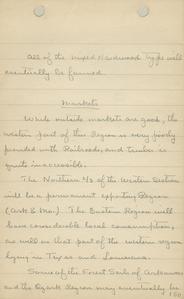 All of the mixed Hardwood Type will
eventually be farmed.
Markets
While outside markets are good, the
western part of this Region is very poorly
provided with Railroads, and timber is
quite inaccessible.
The Northern 2/3 of the Western Section
will be a permanent exporting Region
(Ark & Mo.) The Eastern Region will
have considerable local consumption,
as will as that part of the western region
lying in Texas and Louisiana.
Some of the Forest Soils of Arkansas
and the Ozark Region may eventually be
150